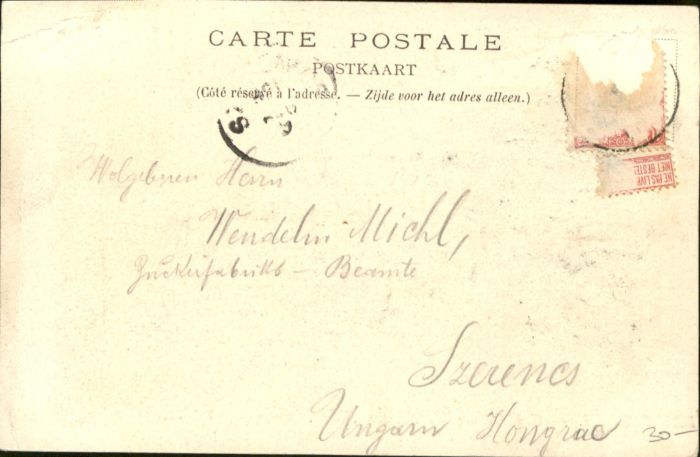 CARTE POSTALE
POSTKAART
(Côté réservé à l'adresse. — Zijde voor het adres alleen.)
NE PAS LIVR
NIET BESTE
Wolgeboren Herrn
Wendelin Michl,
Zuckerfabriks – Beamte
Szerencs
Ungarn Hongrie 30-